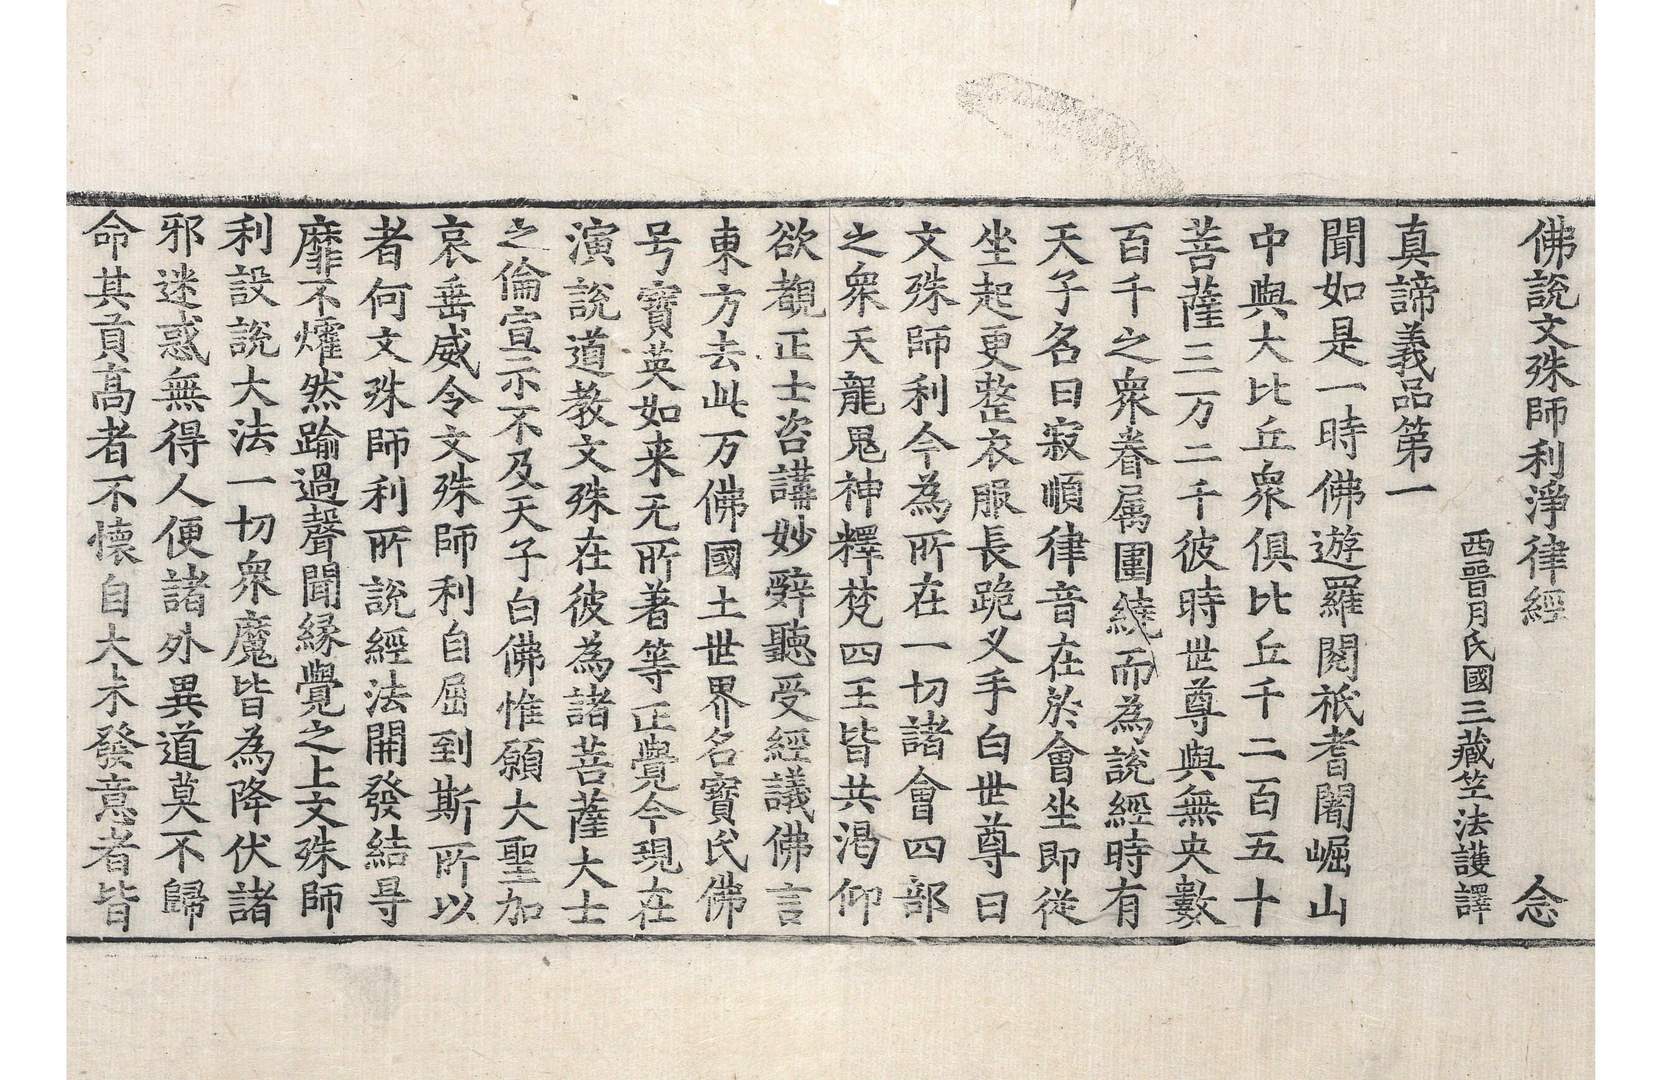 佛說文殊師利淨律經　念
西晉月氏國三藏竺法護譯
真諦義品第一
聞如是一時佛遊羅閱祇耆闍崛山
中與大比丘衆俱比丘千二百五十
菩薩三万二千彼時世尊與無央數
百千之衆眷属圍繞而為說經時有
天子名曰寂順律音在於會坐即從
坐起更整衣服長跪叉手白世尊曰
文殊師利今為所在一切諸會四部
之衆天龍鬼神釋梵四王皆共渴仰
欲覩正士咨講妙辭聽受經議佛言
東方去此万佛國土世界名寶氏佛
号寶英如来无所著等正覺今現在
演說道教文殊在彼為諸菩薩大士
之倫宣示不及天子白佛惟願大聖加
哀垂威令文殊師利自屈到斯所以
者何文殊師利所說經法開發結㝵
靡不燿然踰過聲聞緣覺之上文殊師
利設說大法一切衆魔皆為降伏諸
邪迷惑無得人便諸外異道莫不歸
命其貢高者不懷自大未發意者皆